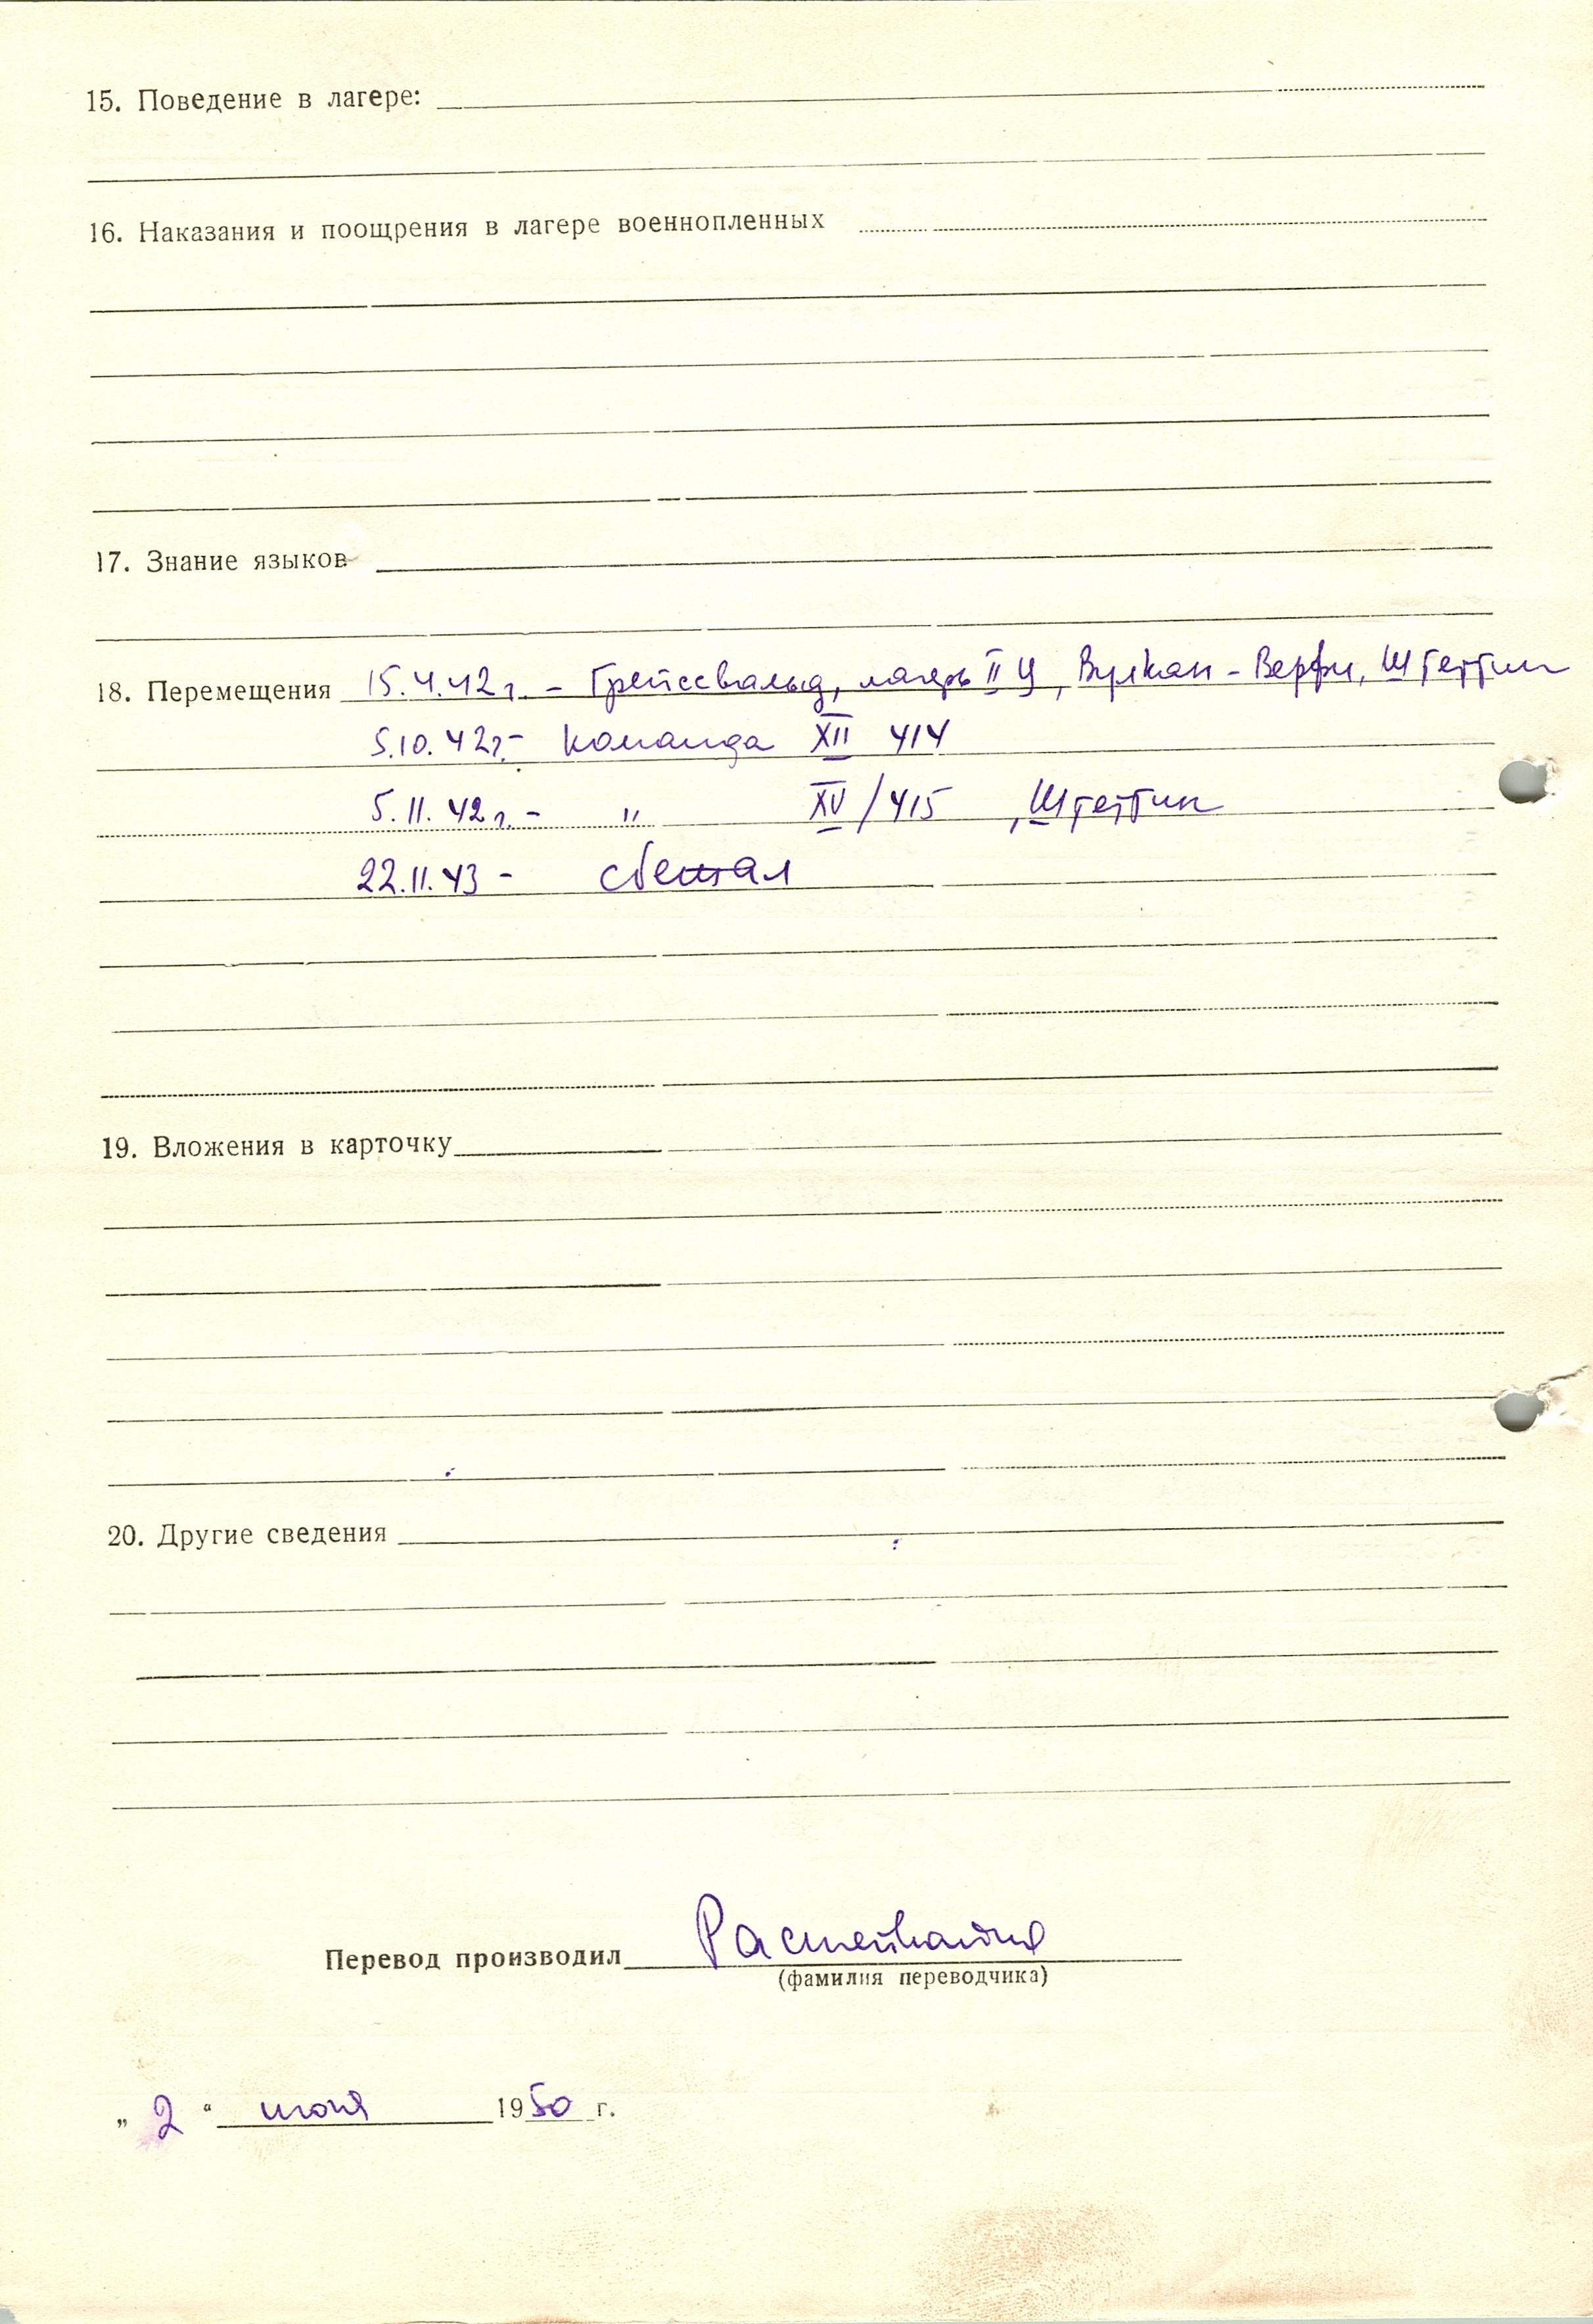 15. Поведение в лагере:
16. Наказания и поощрения в лагере военнопленных
17. Знание языков
18. Перемещения 15.4.42г. – Грейссвальд, лагерь II Ц, Вулкан – Верфи, Штеттин
5.10.42г. – команда XII 414
5.11.42г. – " XV/415 , Штеттин
22.11.43 – сбежал
19. Вложения в карточку
20. Другие сведения
Перевод производил
(фамилия переводчика)
„ 2 “ июня 1950 г.